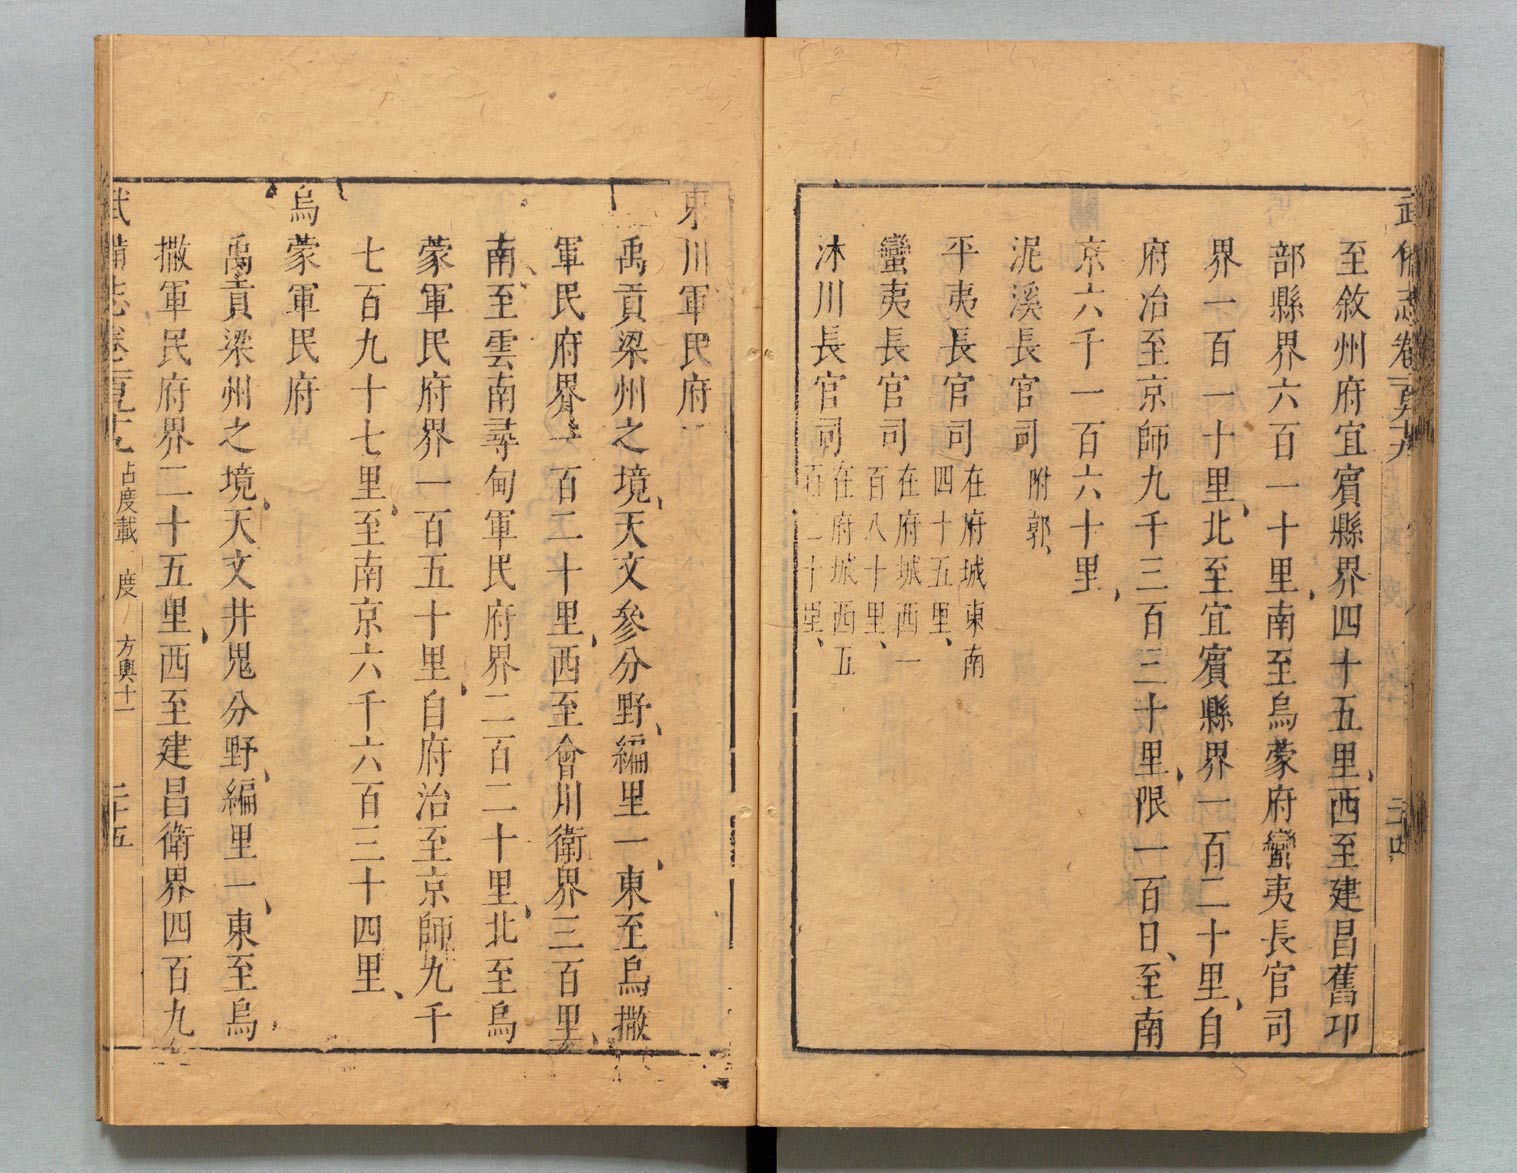 至敘州府宜賓縣界四十五里西至建昌舊卭
部縣界六百一十里南至烏蒙府蠻夷長官司
界一百一十里北至宜賓縣界一百二十里自
府治至京師九千三百三十里限一百日至南
京六千一百六十里
泥溪長官司附郭
平夷長官司在府城東南
四十五里
蠻夷長官司在府城西一
百八十里
沐川長官司在府城西五
百二十里
東川軍民府
禹貢梁州之境天文參分野編里一東至烏撒
軍民府界一百二十里西至會川衛界三百里
南至雲南尋甸軍民府界二百二十里北至烏
蒙軍民府界一百五十里自府治至京師九千
七百九十七里至南京六千六百三十四里
烏蒙軍民府
禹貢梁州之境天文井鬼分野編里一東至烏
撒軍民府界二十五里西至建昌衛界四百九
武備志卷 占度載 度 方輿十一 二十五